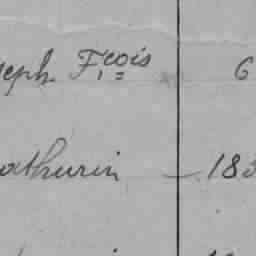 seph Fçois 6
athurin - 183